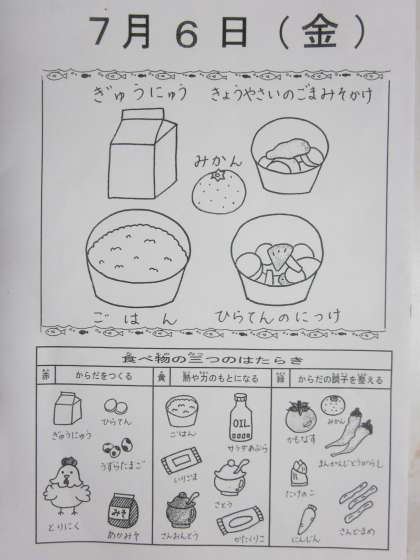 7月6日(金)
ぎゅうにゅう きょうやさいのごまみそかけ
みかん
ごはん ひらてんのにつけ
食べ物の三つのはたらき
赤 からだをつくる 黄 熱や力のもとになる 緑 からだの調子を整える
ぎゅうにゅう ひらてん ごはん OIL サラダあぶら かもなす みかん
うずらたまご いりごま まんがんじとうがらし
とりにく みそ あかみそ さとう たけのこ
さんおんとう かたくりこ にんじん さんどまめ